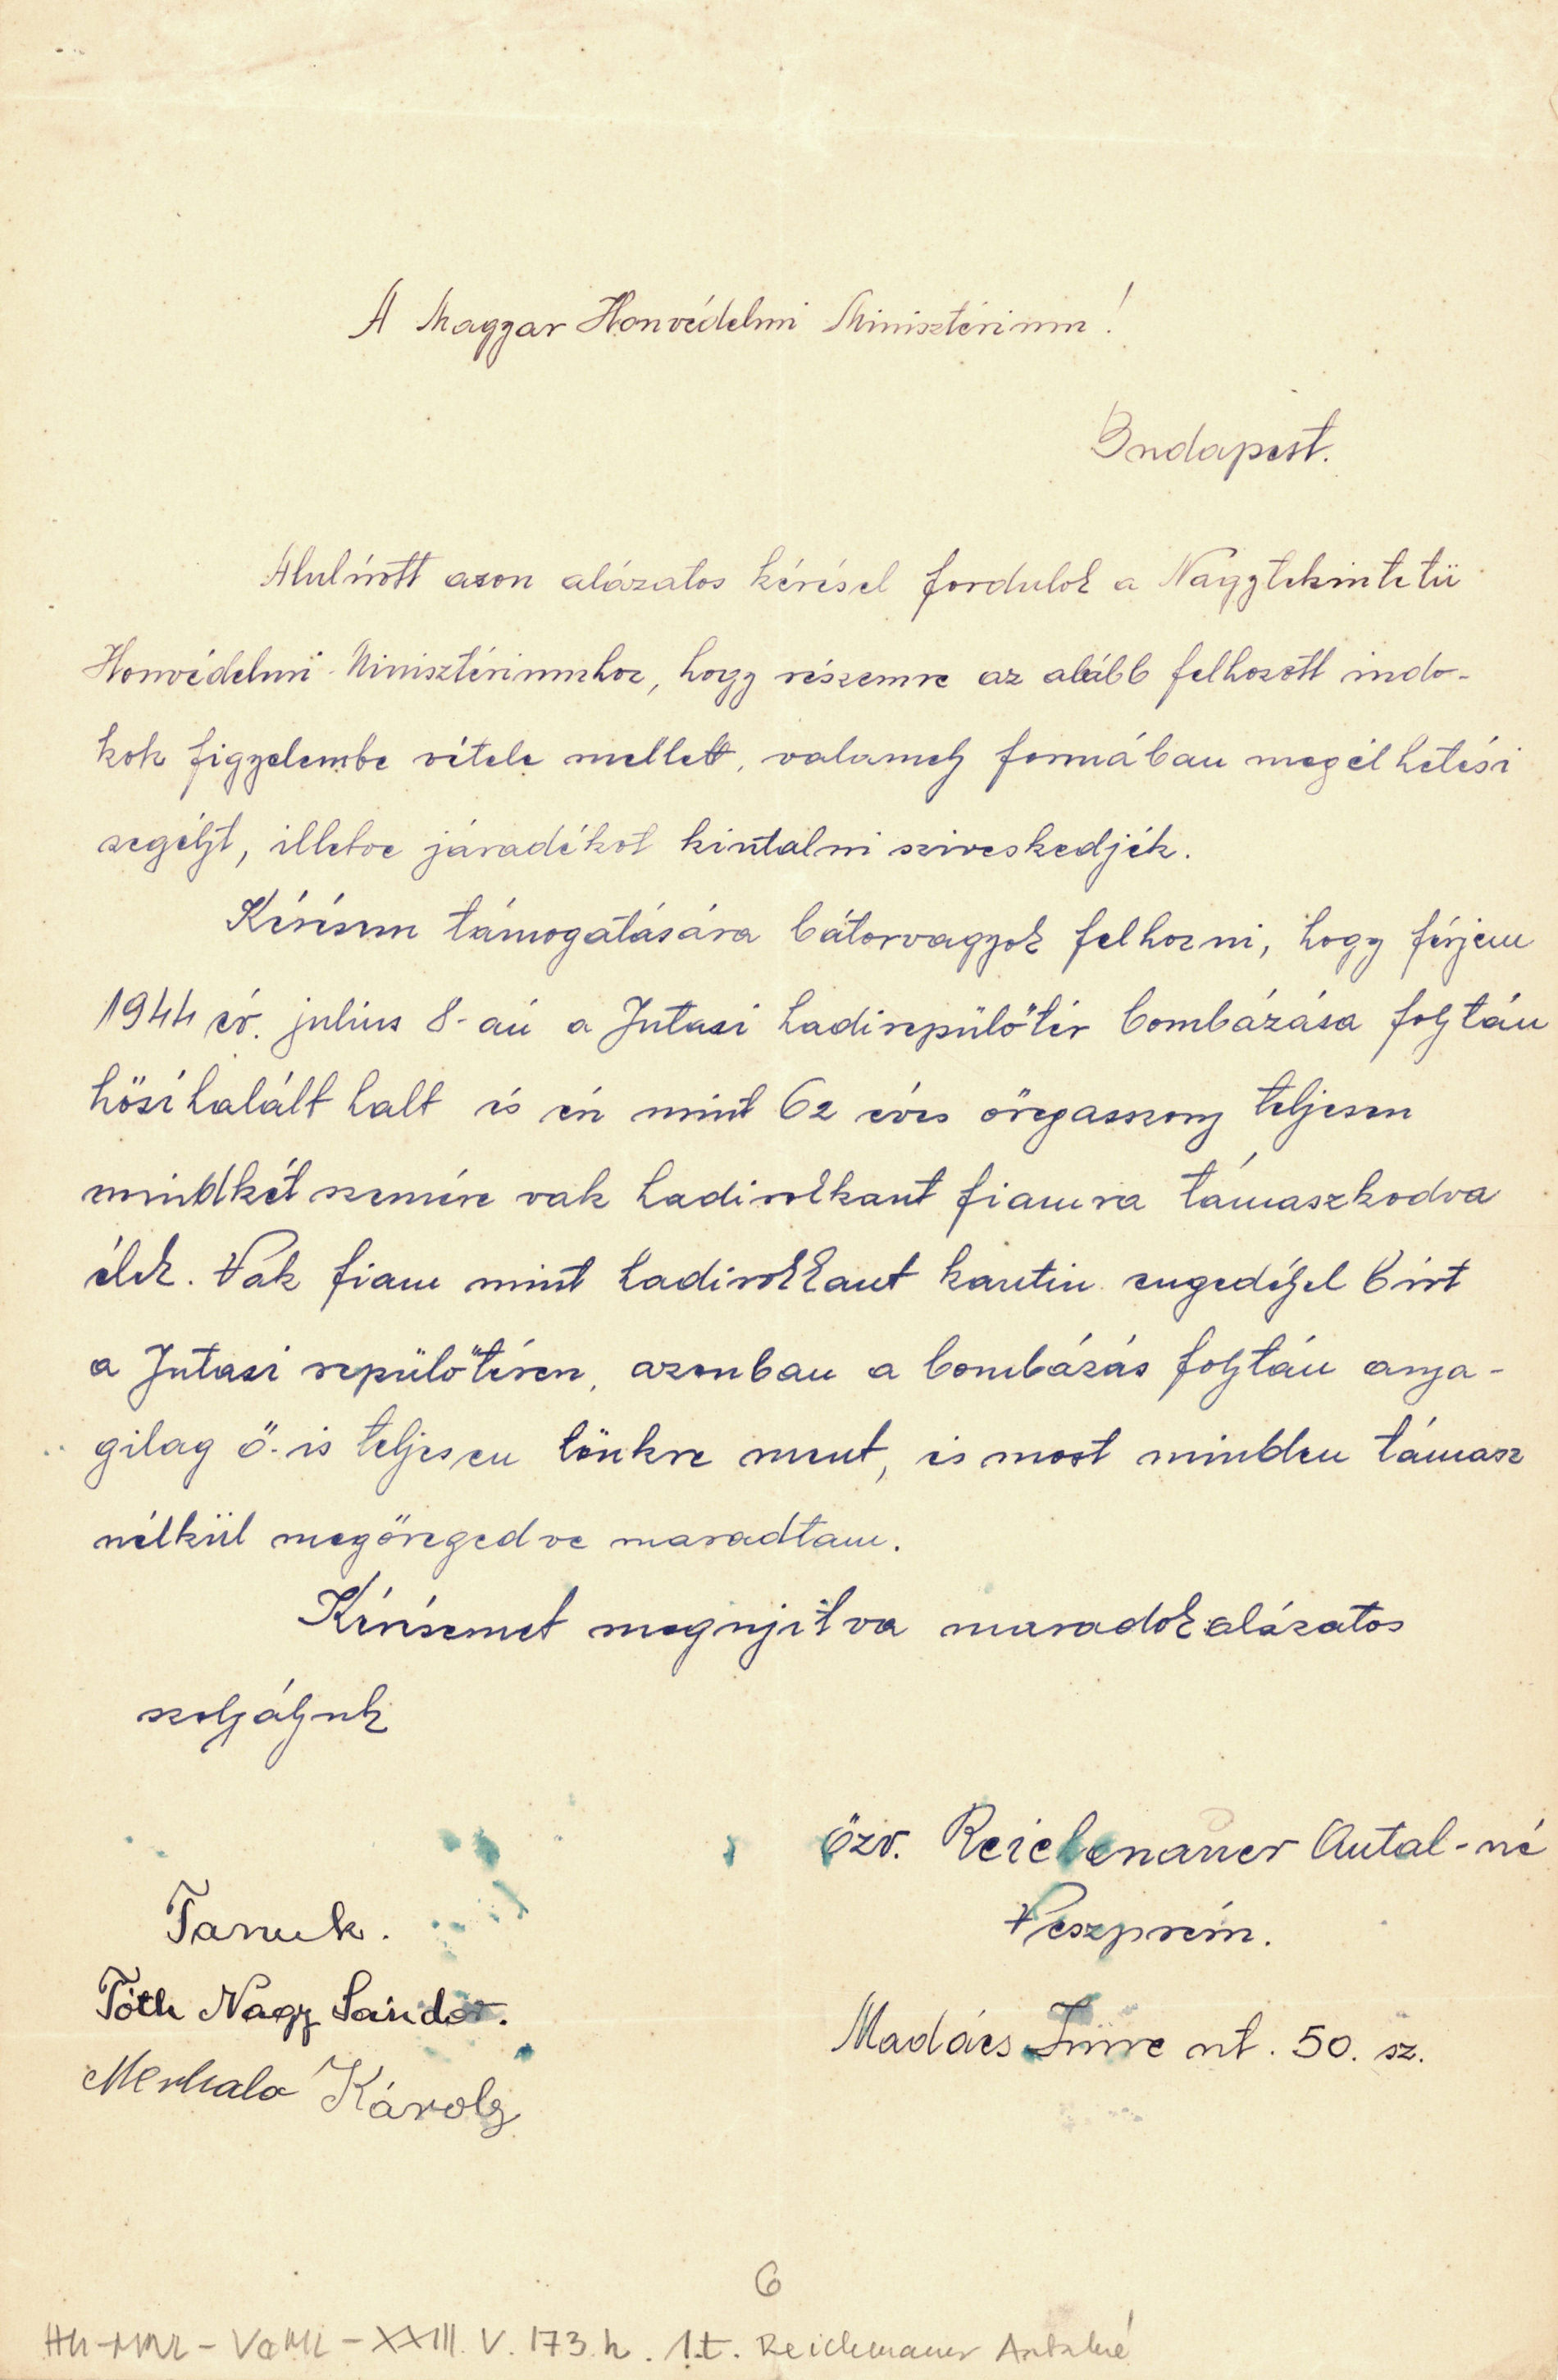 A Magyar Honvédelmi Minisztérium!
Budapest.
Alulírott azon alázatos kérésel fordulok a Nagytekintetü
Honvédelmi Minisztériumhoz, hogy részemre az alább felhozott indo-
kok figyelembe vétele mellett, valamely formában megélhetési
segélyt, illetve járadékot kiutalni sziveskedjék.
Kérésem támogatására bátorvagyok felhozni, hogy férjem
1944 év. julius 8-aú a Jutasi hadirepülőtér bombázása folytán
hösihalált halt és én mint 62 éves öregasszony teljesen
mindkét szemére vak hadirokkant fiamra támaszkodva
élek. Vak fiam mint hadirokkant kantin engedéjel birt
a Jutasi repülőtéren, azonban a bombázás folytán anya-
gilag ő-is teljesen tönkre ment, és most minden támasz
nélkül megöregedve maradtam.
Kérésemet megujitva maradok alázatos
szolgájuk
özv. Reichenauer Antal-né
Veszprém.
Madács Imre ut. 50. sz.
Tanuk.
Tóth Nagy Sándor.
Károly
6
HU-MNL-VeML-XXIII.V.173.h. 1.t. Reichenauer Antalné